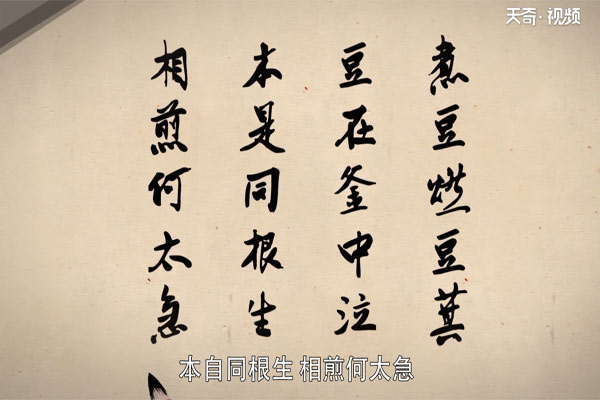 天奇·视频
煮豆燃豆萁
豆在釜中泣
本是同根生
相煎何太急
本自同根生 相煎何太急